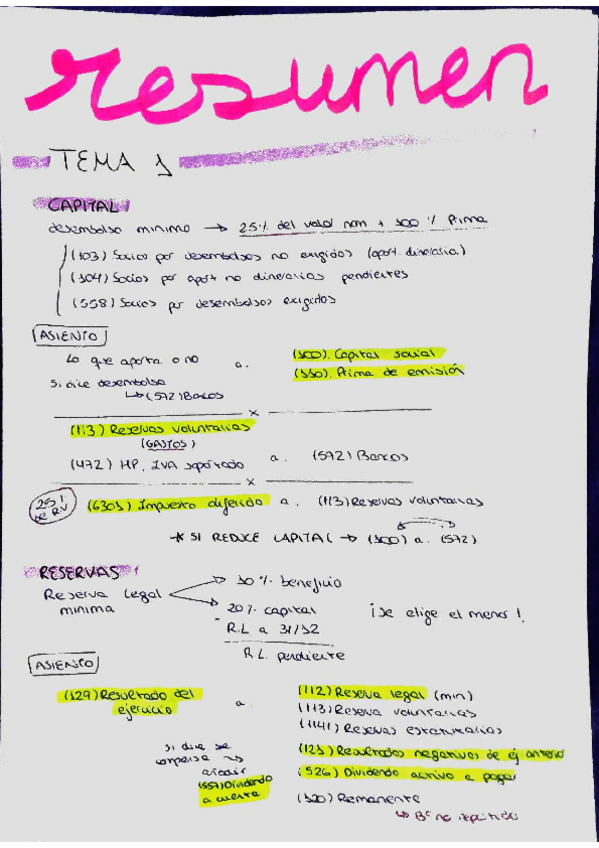 resumen
TEMA 1
CAPITAL
desembolso minimo → 25% del valor nom + 100% Prima
(103) Socios por desembolsos no exigidos (aport. dineraria)
(104) Socios por aport no dinerarias pendientes
(558) Socios por desembolsos exigidos
ASIENTO
Lo que aporta o no a. (100). Capital social
(110). Prima de emisión
Si dice desembolso
↳ (572) Bancos
x
(113) Reservas voluntarias
(GASTOS)
(472) HP, IVA soportado a. (572) Bancos
x
25% de RV (6301) Impuesto diferido a. (113) Reservas voluntarias
* SI REDUCE CAPITAL → (100) a. (572)
RESERVAS
Reserva legal minima → 10% beneficio
→ 20% capital ¡se elige el menor!
- R.L a 31/12
R.L. pendiente
ASIENTO
(129) Resultado del ejercicio a. (112) Reserva legal (min)
(113) Reserva voluntarias
(1141) Reservas estatutarias
(121) Resultados negativos de ej anterio
(526) Dividendo activo a pagar
(120) Remanente
↳ Bº no repartido
si dice se compensa → añadir
(557) Dividendo a cuenta